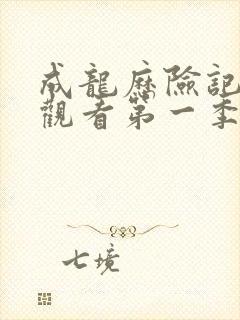 成龍歷險記
觀看第一季
七境